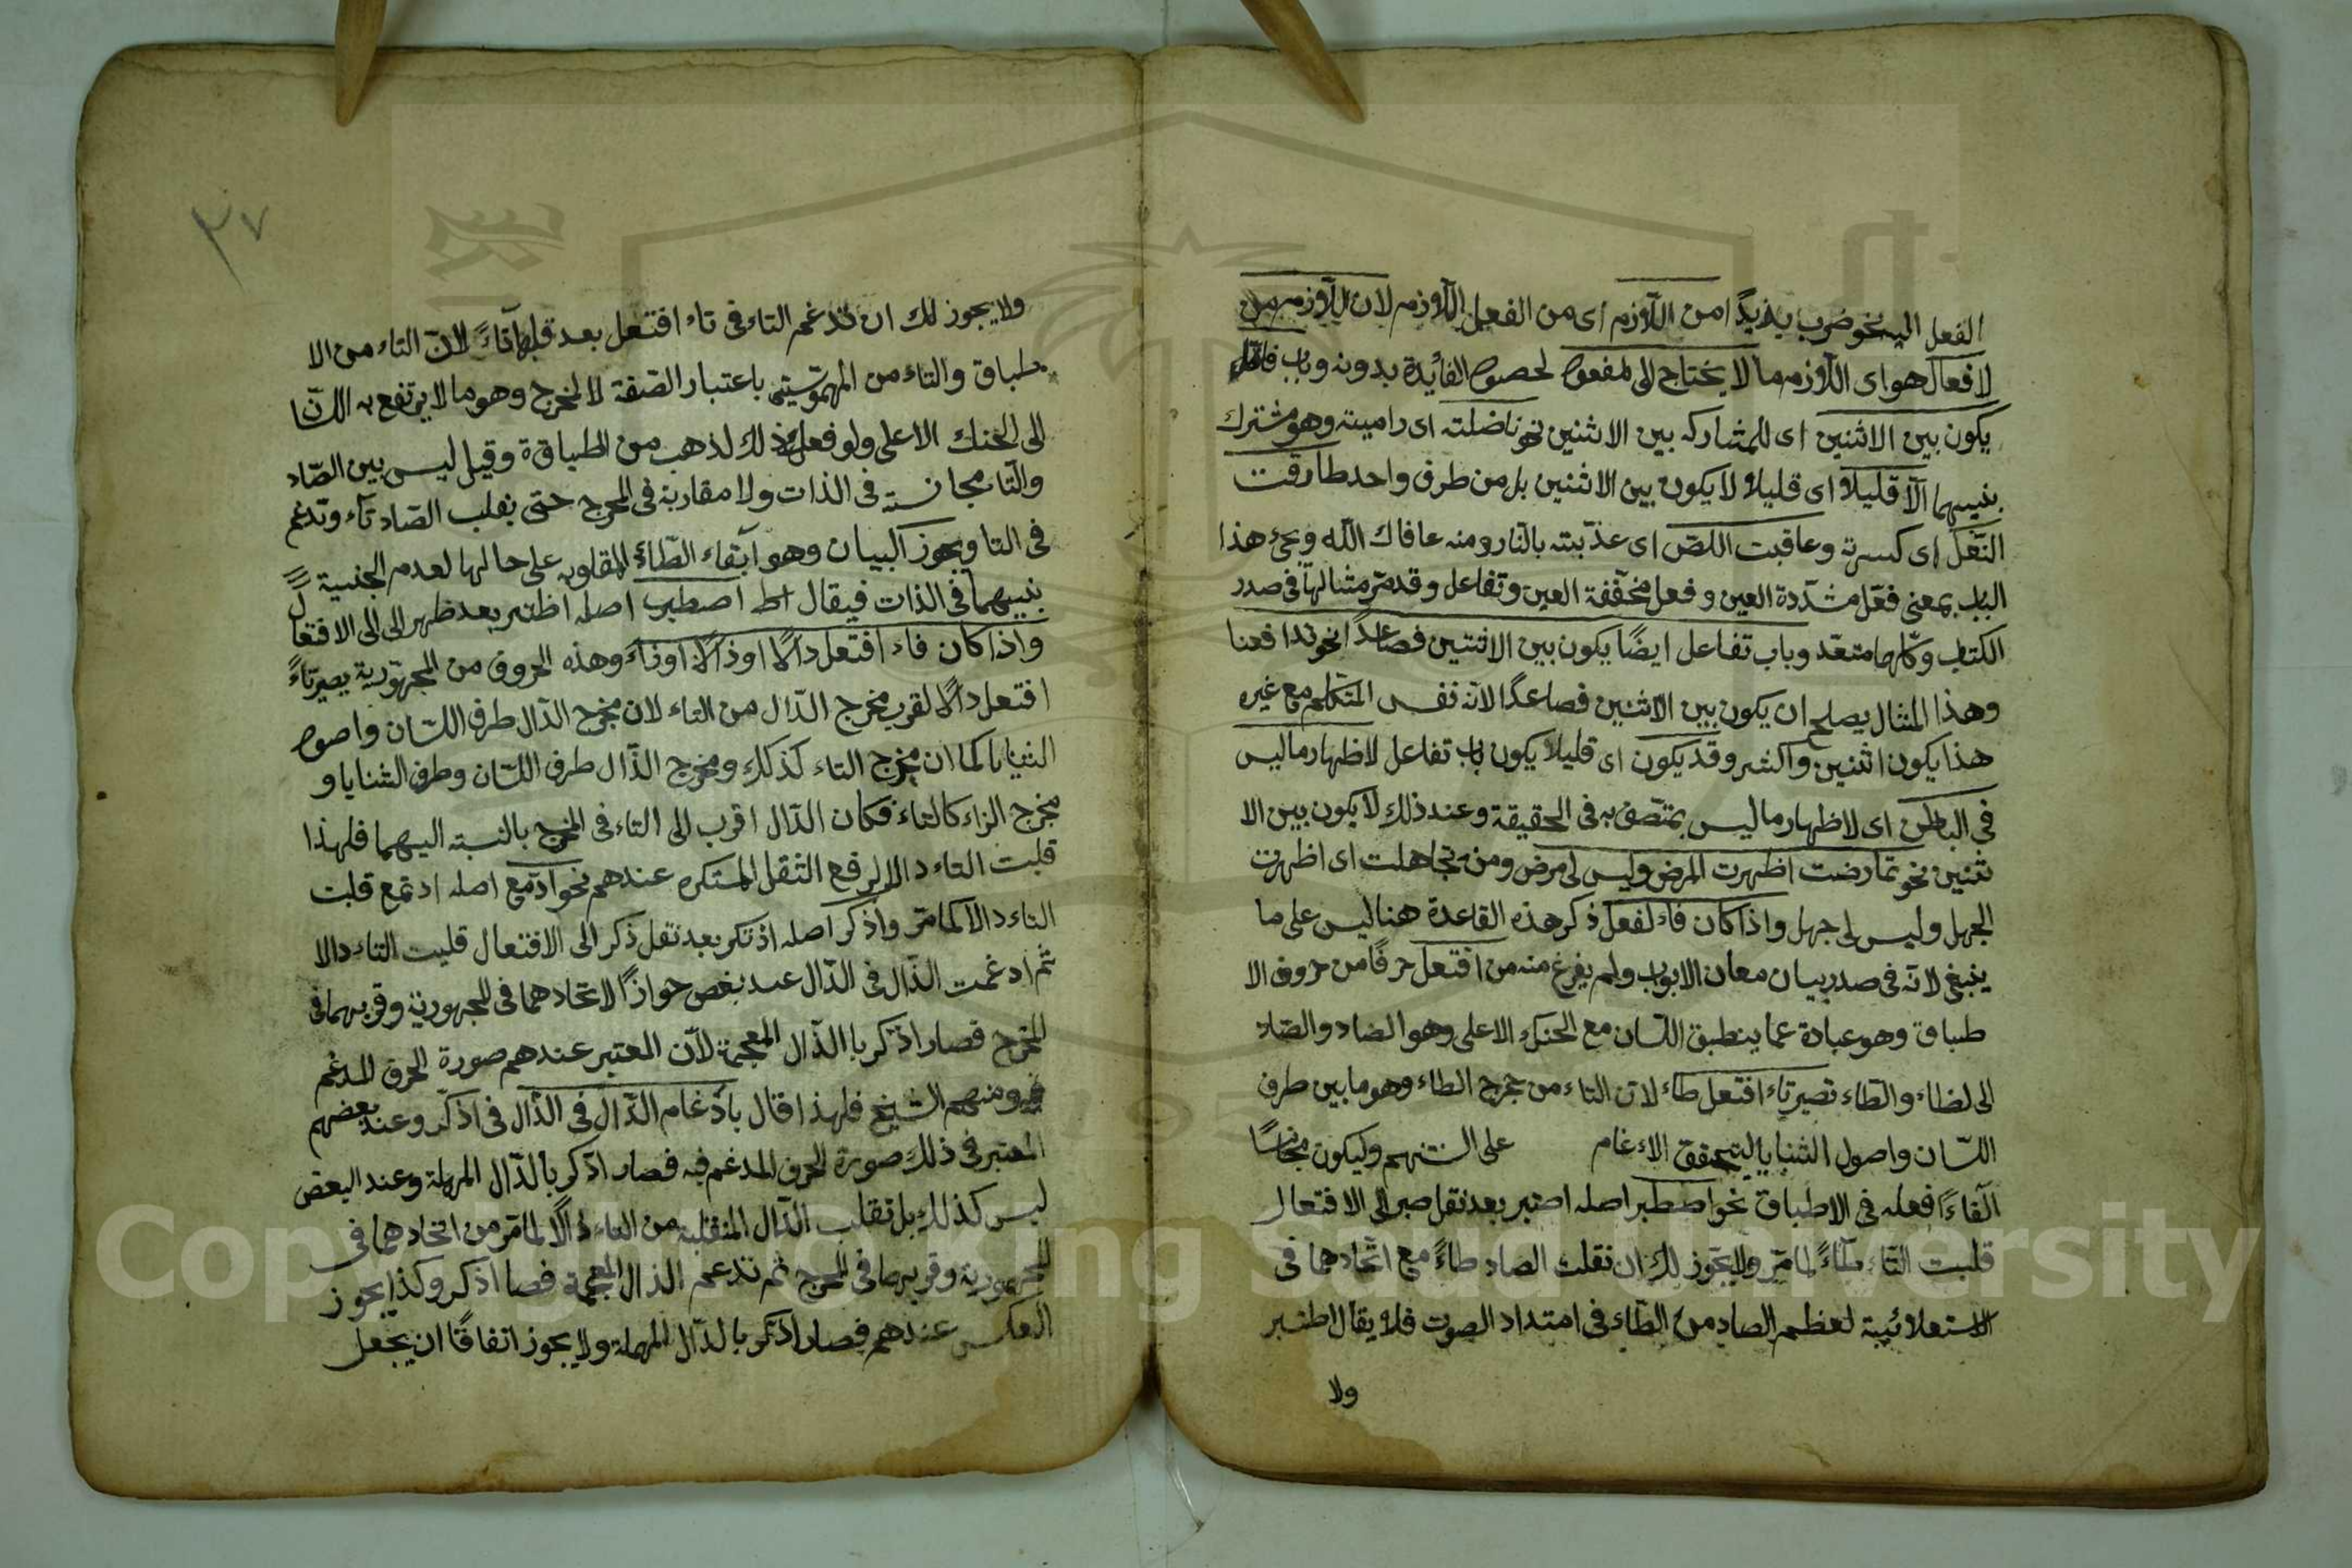 الفعل اليه نحو ضرب يد زيدًا من اللّازم اى من الفعل اللّازم لان اللّازم من
لا فعال هو اى اللّازم ما لا يحتاج الى المفعول لحصول الفائدة بدونه وباب فاعل
يكون بين الاثنين اى للمشاركه بين الاثنين نحو ناضلته اى راميته وهو مشترك
بنيهما الّا قليلًا اى قليلا لا يكون بين الاثنين بل من طرف واحد طارقت
النّعل اى كسرته وعاقبت اللصّ اى عذّبته بالنّار ومنه عافاك اللّه ويجئ هذا
الباب بمعنى فعّل مشدّدة العين و فعل مخفّفة العين وتفاعل وقد مرّ مثالها فى صدر
الكتاب وكلّها متعّد وباب تفاعل ايضًا يكون بين الاثنين فصاعدًا نحو تدافعنا
وهذا المثال يصلح ان يكون بين الاثنين فصاعدًا لانّه نفس المتكلم مع غيره
هذا يكون اثنين واكثر وقد يكون اى قليلا يكون باب تفاعل لاظهار ما ليس
فى الباطن اى لاظهار ما ليس بمتّصف به فى الحقيقة وعند ذلك لا يكون بين الا
ثنين نحو تمارضت اظهرت المرض وليس لى مرض ومنه تجاهلت اى اظهرت
الجهل وليس لى جهل واذا كان فاء لفعل ذكر هذه القاعدة هنا ليس على ما
ينبغى لانّه فى صدر بيان معان الابوب ولم يفرغ منه من افتعل حرفًا من حروف الا
طباق وهو عبادة عما ينطبق اللّسان مع الحنك الاعلى وهو الضاد والصّاد
الى لظاء والطّاء تصير تاء افتعل طاء لانّ التاء من مخرج الطاء وهو ما بين طرف
اللّسان واصول الثنايا ليتحقق الاءغام على السنتهم وليكون مجانسًا
الفاءً فعله فى الاطباق نحو اصطبر اصله اصتبر بعد نقل صبر الى الافتعال
قلبت التّاء طآءً لما مرّ ولا يجوز لك ان تقلب الصاد طاءً مع اتّحادهما فى
الاستعلائية لعظم الصاد من الطّاء فى امتداد الصوت فلا يقال اطبر
ولا
٣٧
ولا يجوز لك ان تدغم التاء فى تاء افتعل بعد قلبها تاءً لانّ التاء من الا
طباق والتاء من المهموستى باعتبار الصّفة لا لمخرج وهو ما لا يرتفع به اللسّا
الى الحنك الاعلى ولو فعل ذلك لذهب من الطباقة وقيل ليس بين الصّاد
والتّا مجانسته فى الذات ولا مقاربة فى المخرج حتى يقلب الصّاد تآء وتدغم
فى التا ويجوز البيان وهو ابقاء الطّاءً المقلوبه على حالها لعدم الجنسية
بنيهما فى الذات فيقال اصطبر اصله اظتهر بعد ظهر الى الى الافتعال
واذا كان فاء افتعل دالًا او ذالًا او زاءً وهذه الحروف من المجهّورية يصير تاءً
افتعل دالًا لقرب مخرج الدّال من التاء لان مخرج الدّال طرف اللسّان واصول
الثنايا كما ان مخرج التاء كذلك ومخرج الذّال طرف اللسّان وطرف الثنايا و
مخرج الزاء كالتاء فكان الدّال اقرب الى التاء فى المخرج بالنسبته اليهما فلهذا
قلبت التاء دالا لرفع الثقل المستكره عندهم نحو ادّمع اصله ادتمع قلبت
التاء دالا كما مرّ واذكر اصله اذتكر بعد نقل ذكر الى الافتعال قلبت التاء دالا
ثم ادغمت الذّال فى الدّال عند بعض جوازًا لاتحادهما فى المجهورية وقربهما فى
المخرج فصار اذكر با الذّال المعجمة لانّ المعتبر عندهم صورة الحرف المدغم
ومنهم الشيخ فلهذا قال بادغام الدّال فى الذّال فى اذكّر وعند بعضهم
المعتبر فى ذلك صورة الحرف المدغم فيه فصار ادّكر بالدّال المهملة وعند البعض
ليس كذلك بل تقلب الدّال المنقلبة من التاء ذالًا لما مرّ من اتحادهما فى
المجهورية وقربهما فى المخرج ثم تدغم الذال المعجمة فصا اذكر وكذا يجوز
العكس عندهم فصار ادّكر بالدّال المهملة ولا يجوز اتفاقًا ان يجعل
Copyright © King Saud University